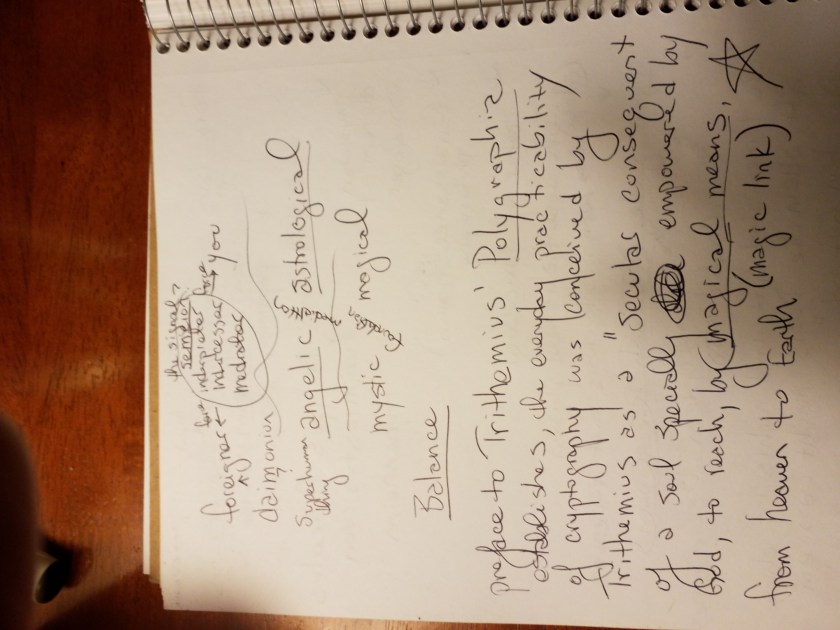 the signal?
semeion?
foreigner ← interpreter → you
intercessor
mediator
daimonion
superhuman
thing
angelic astrological
mystic magical
Balance
preface to Trithemius' Polygraphia
establishes, the everyday practicability
of cryptography was conceived by
Trithemius as a "secular consequent
of a soul specially empowered by
God, to reach, by magical means,
from heaven to Earth (magic link)